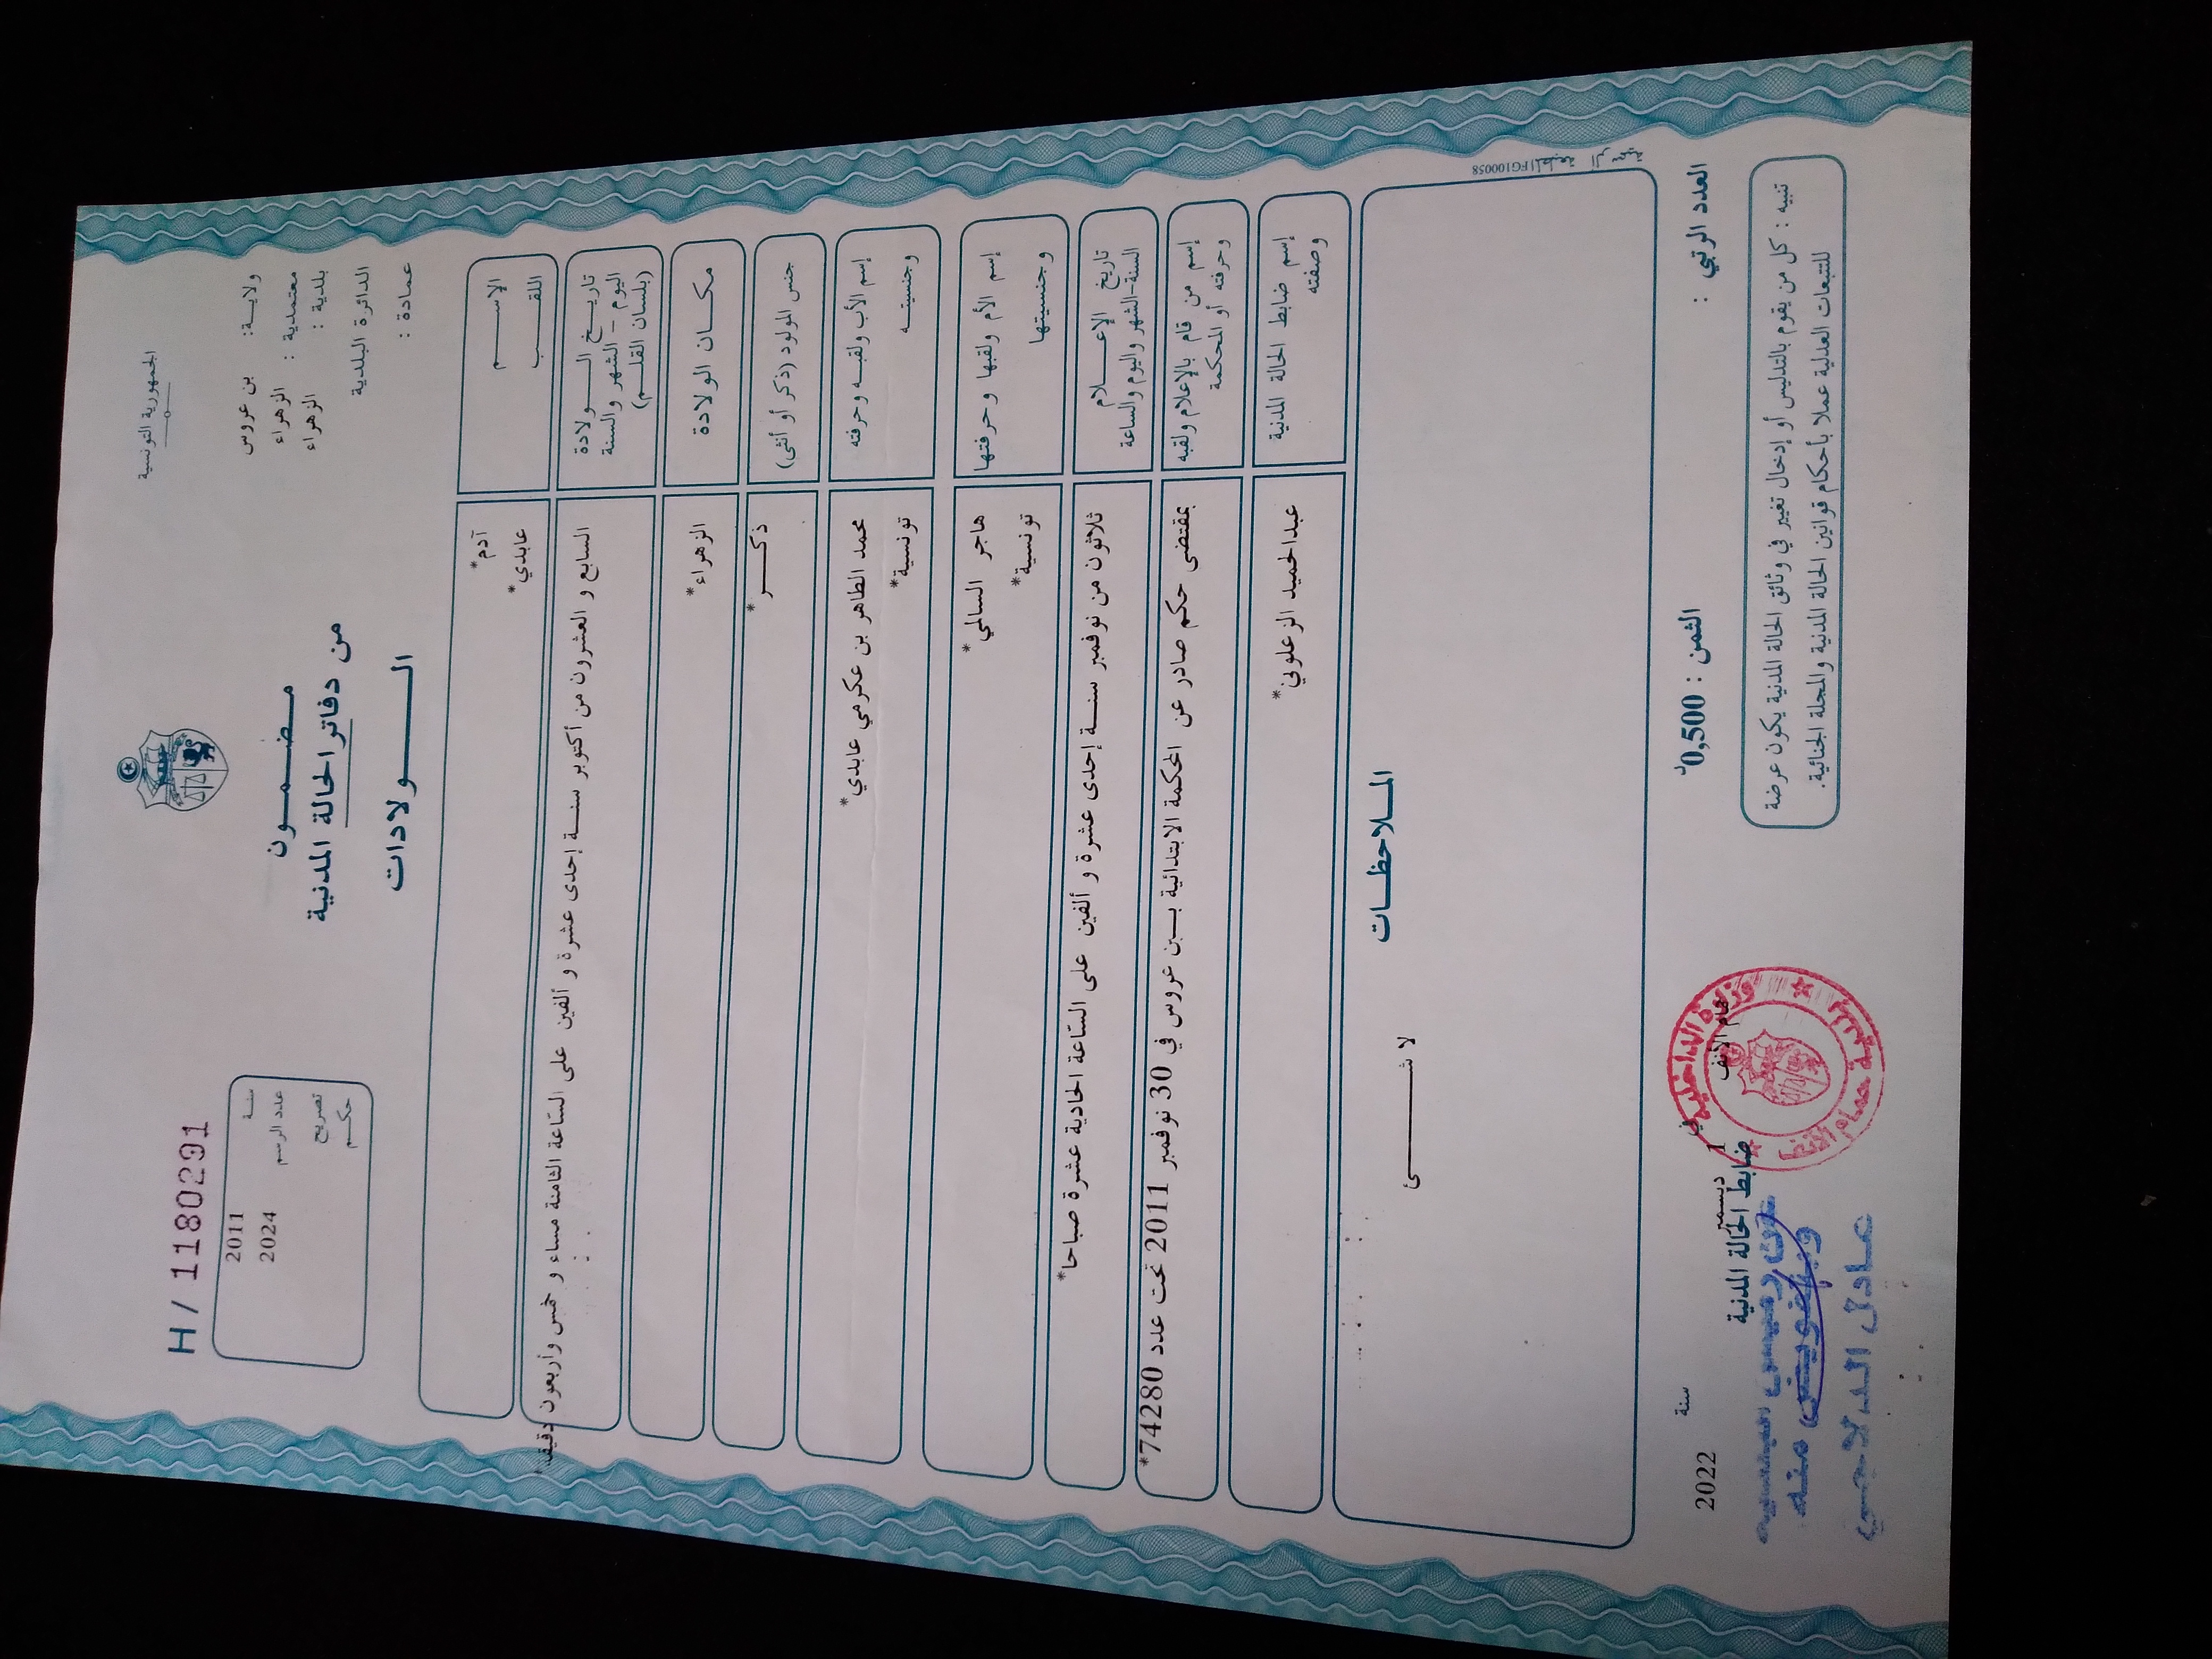 الجمهورية التونسية
H / 1180291
ولايــة: بن عروس
معتمدية : الزهراء
بلدية : الزهراء
الدائرة البلدية
عمادة :
مــضــمــون
من دفاتر الحالة المدنية
الــــولادات
سنــة 2011
عدد الرسم 2024
تصريح
حكــم
الإســــم آدم*
اللقــــب عابدي*
تاريــخ الــــولادة
اليوم - الشهر والسنة
(بلسان القلــم)
السابع و العشرون من أكتوبر سنــة إحدى عشرة و ألفين على الساعة الثامنة مساء و خمس وأربعون دقيقة*
مكــان الولادة الزهراء*
جنس المولود (ذكر أو أنثى) ذكــــر*
إسم الأب ولقبــه وحرفته محمد الطاهر بن عكرمي عابدي*
وجنسيتــه تونسية*
إسم الأم ولقبها وحرفتها هاجر السالمي*
وجنسيتها تونسية*
تاريخ الإعــــلام
السنة-الشهر واليوم والساعة
ثلاثون من نوفمبر سنــة إحدى عشرة و ألفين على الساعة الحادية عشرة صباحا*
إسم من قام بالإعلام ولقبه
وحرفته أو المحكمة
بمقتضى حكم صادر عن المحكمة الابتدائية بــبن عروس في 30 نوفمبر 2011 تحت عدد 74280*
إسم ضابط الحالة المدنية
وصفته
عبدالحميد الزعلوني*
المــلاحظــات
لا شــــــئ
المطبعة الرسمية FG100058
العدد الرتبي :
الثمن : 0,500د
حمام الأنف في 1 ديسمبر سنة 2022
ضابط الحالة المدنية
وزارة الداخلية
بلدية حمام الأنف
عن رئيس
وبتفويض منه
عادل الدلاجي
تنبيه : كل من يقوم بالتدليس أو إدخال تغيير في وثائق الحالة المدنية يكون عرضة
للتتبعات العدلية عملا بأحكام قوانين الحالة المدنية والمجلة الجنائية.